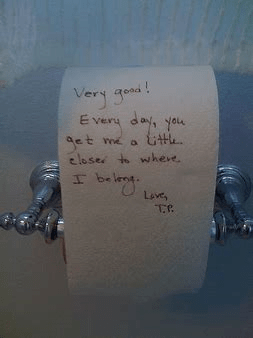 Very good!
Every day, you
get me a little
closer to where
I belong.
Love,
T.P.